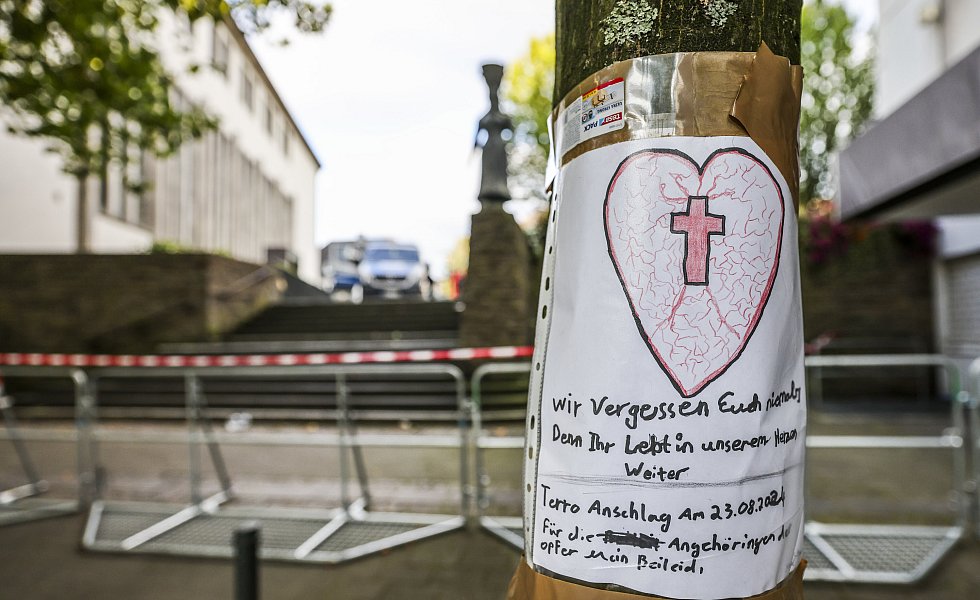 tesa PACK
wir Vergessen Euch niemals
Denn Ihr Lebt in unserem Herzen
Weiter
Terro Anschlag Am 23.08.2024
für die Angehöringen der
opfer mein Beileid,